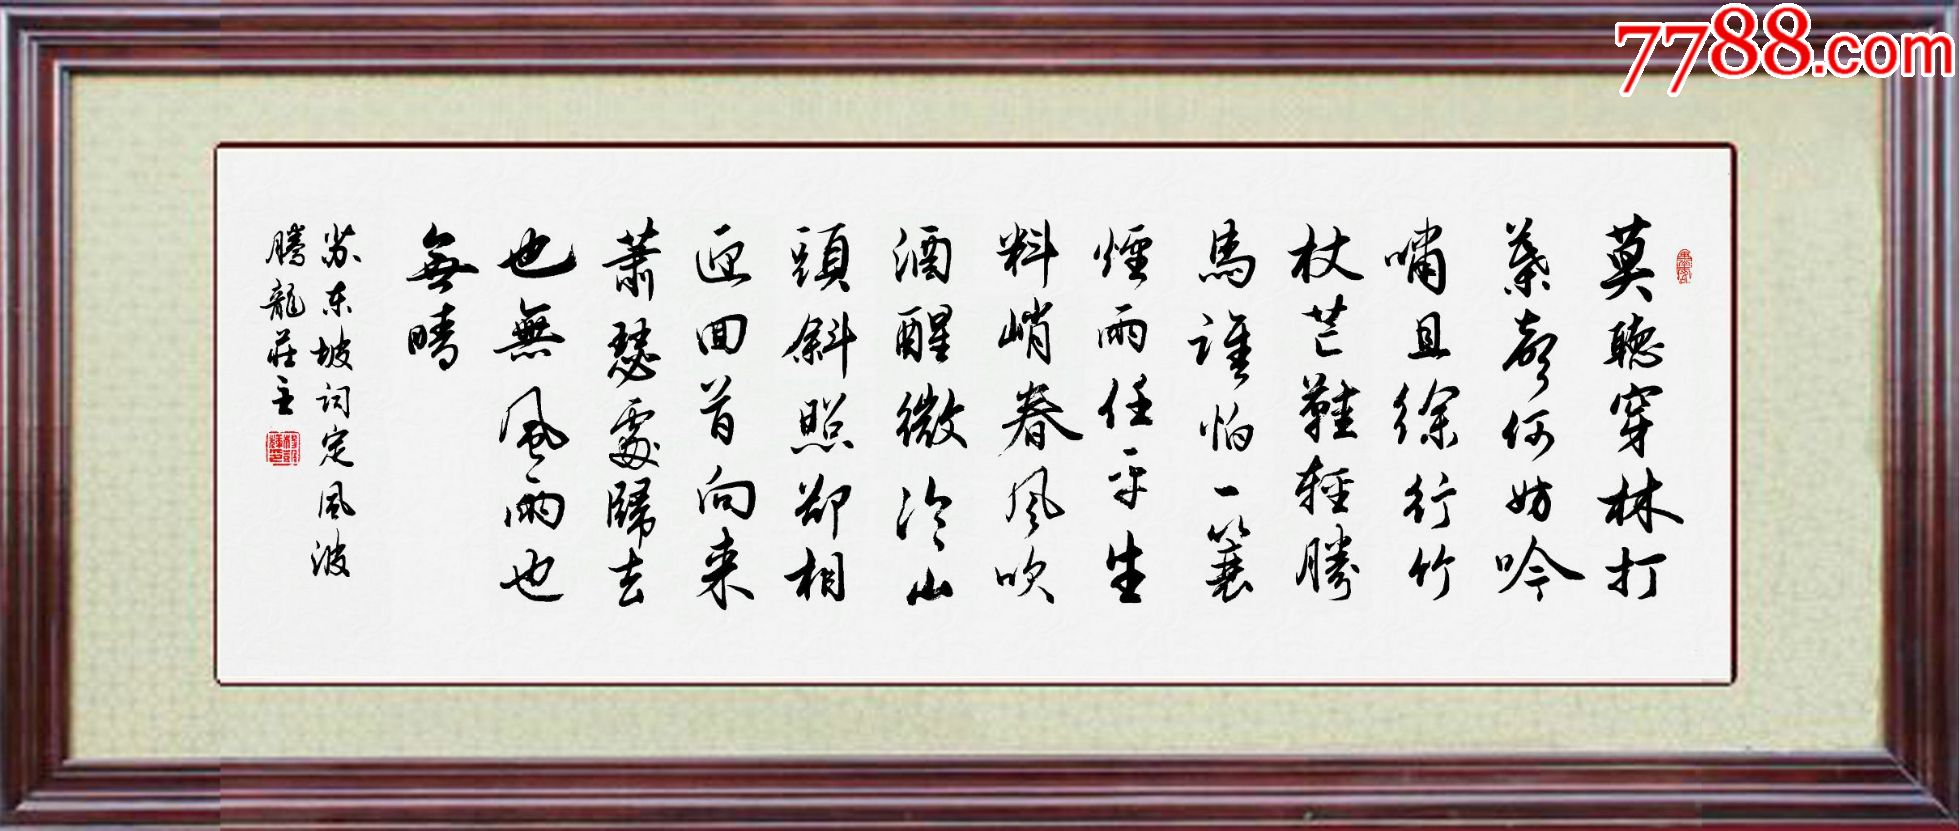 莫聽穿林打
葉聲何妨吟
嘯且徐行竹
杖芒鞋輕勝
馬誰怕一蓑
煙雨任平生
料峭春風吹
酒醒微冷山
頭斜照卻相
迎回首向来
蕭瑟處歸去
也無風雨也
無晴
苏东坡词定风波
騰龍莊主
7788.com